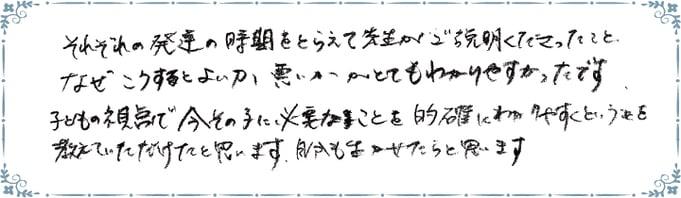 それぞれの発達の時期をとらえて先生がご説明くださったこと、
なぜこうするとよいか、悪いかがとてもわかりやすかったです。
子どもの視点で今その子に必要なことを的確にわかりやすくという
教えていただけたと思います。 たらと思います